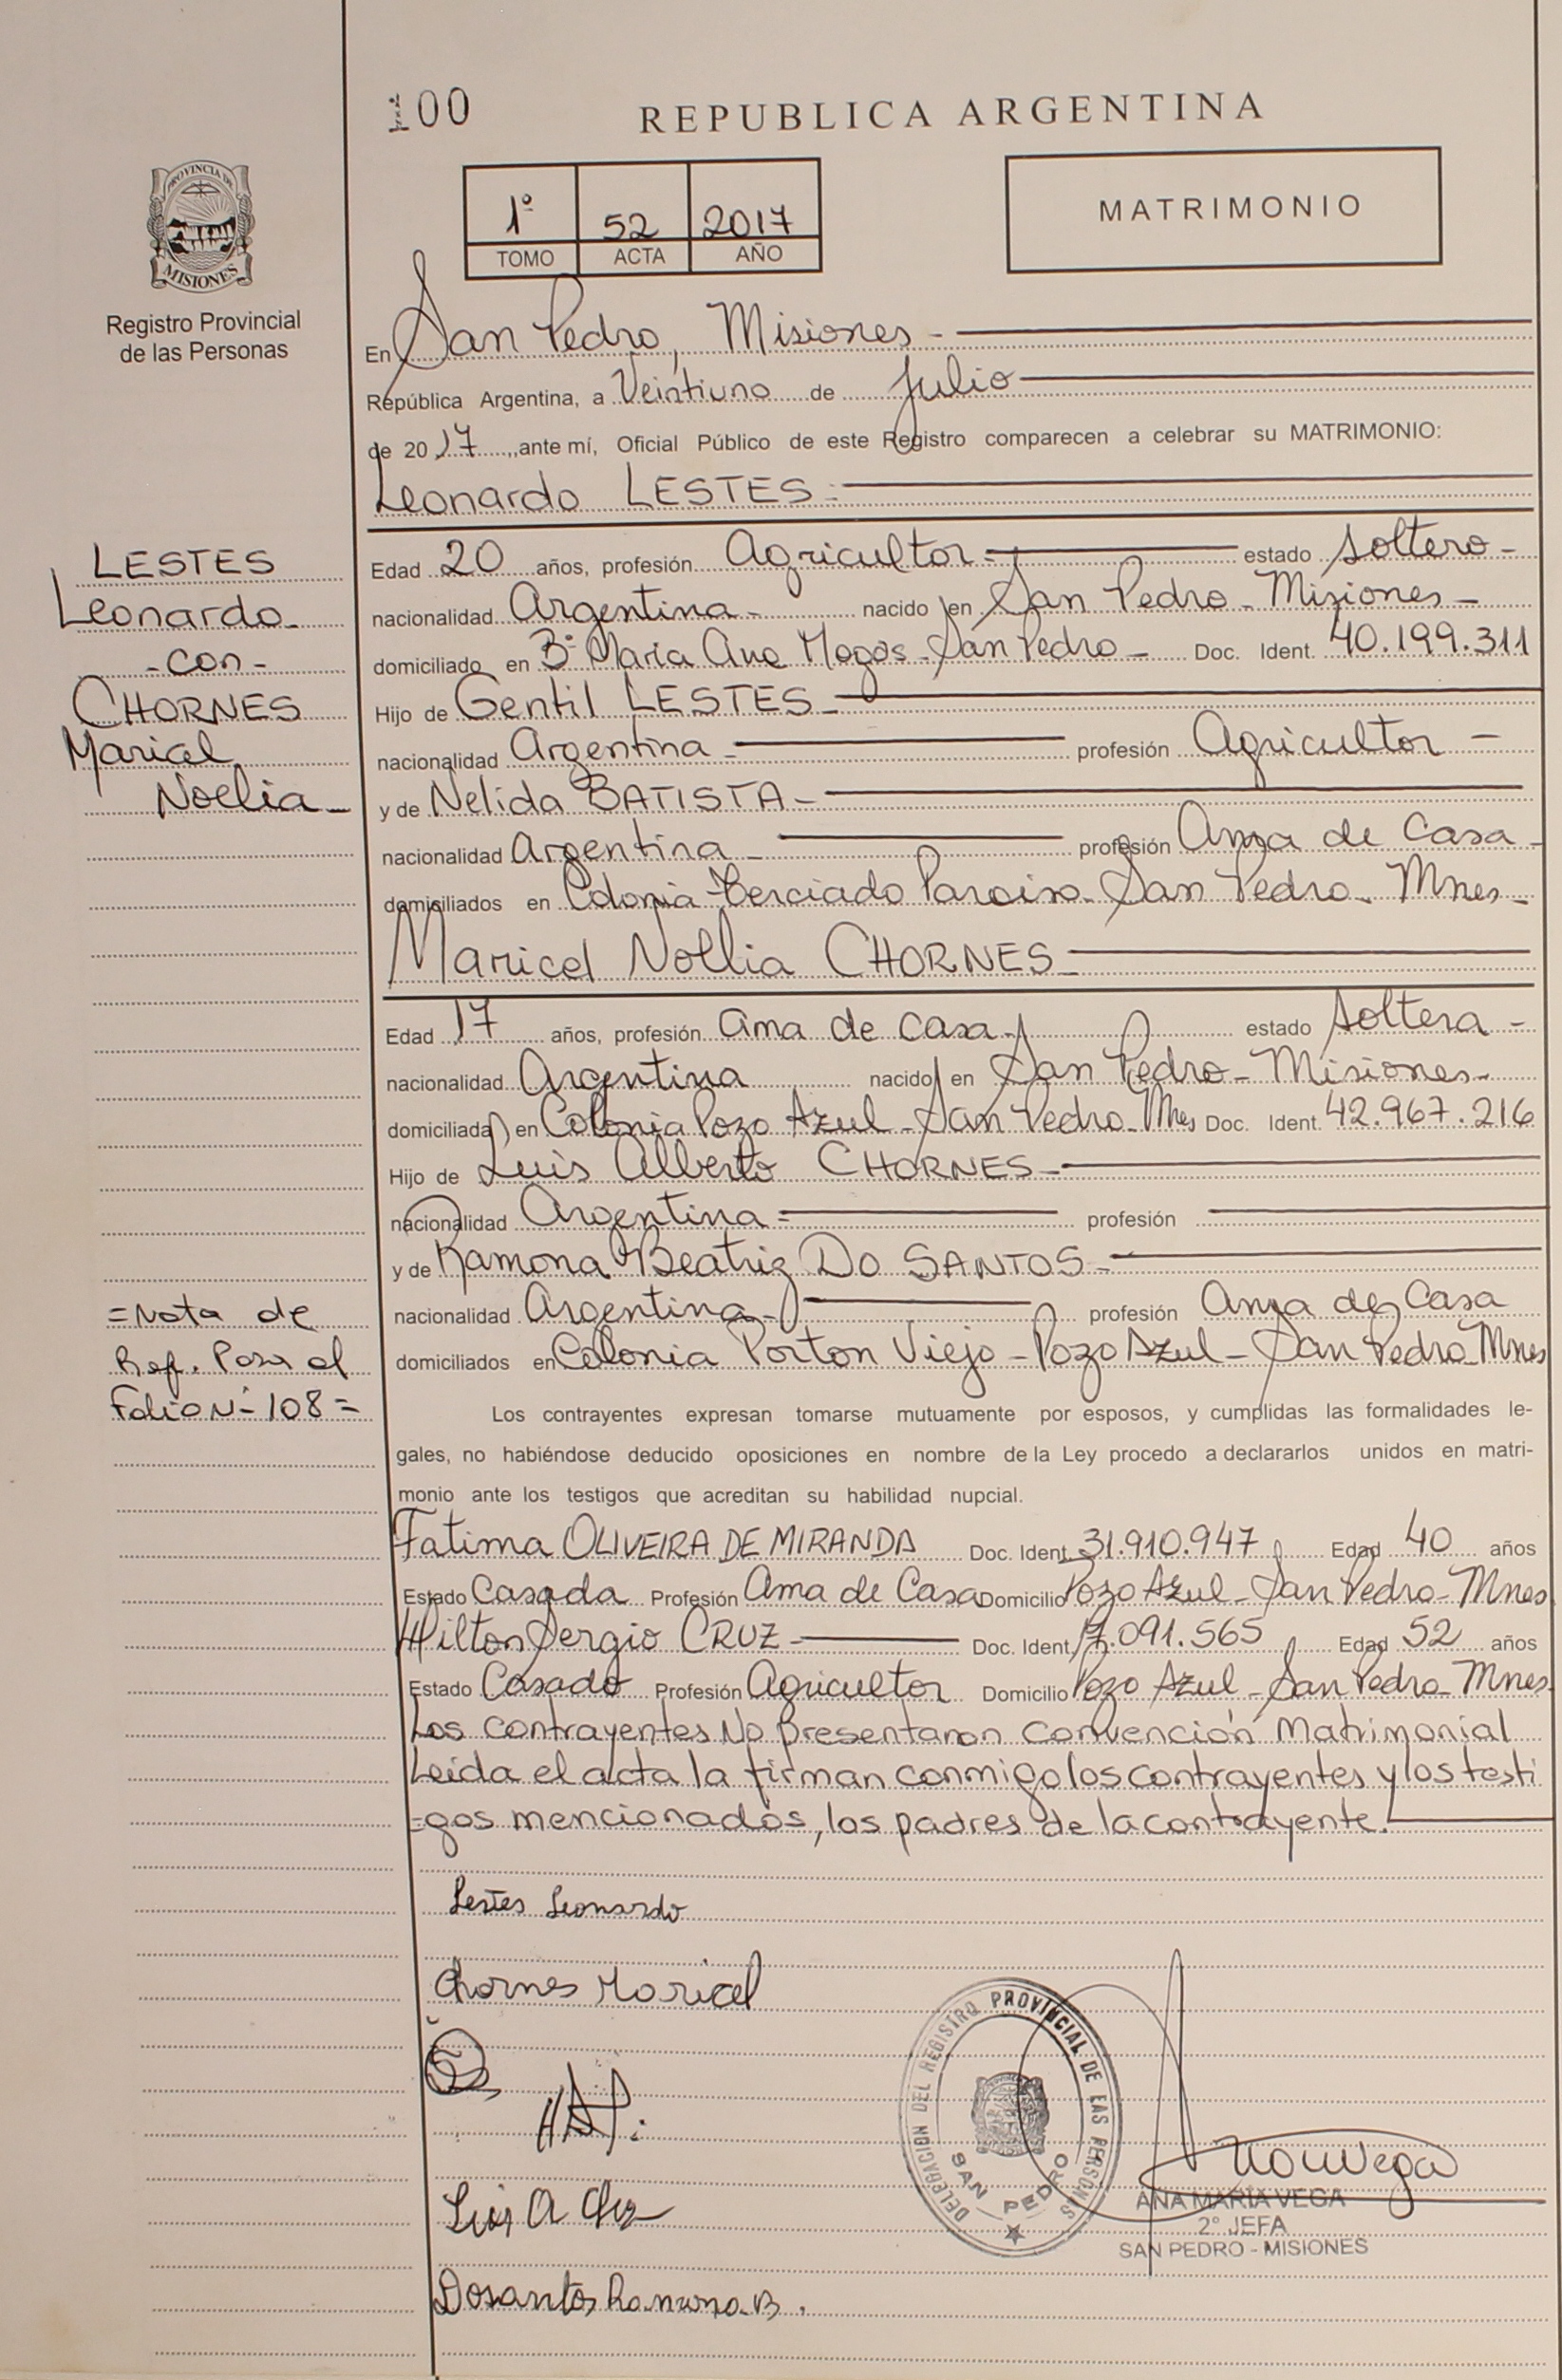 100
REPUBLICA ARGENTINA
PROVINCIA DE
MISIONES
Registro Provincial
de las Personas
1º 52 2017
TOMO ACTA AÑO
MATRIMONIO
En San Pedro, Misiones -
República Argentina, a Veintiuno de Julio
de 20 17 ,,ante mí, Oficial Público de este Registro comparecen a celebrar su MATRIMONIO:
Leonardo LESTES
LESTES
Leonardo
- con -
CHORNES
Maricel
Noelia
Edad 20 años, profesión Agricultor - estado Soltero -
nacionalidad Argentina - nacido en San Pedro - Misiones -
domiciliado en Bº Maria Ana Mogas - San Pedro - Doc. Ident. 40.199.311
Hijo de Gentil LESTES -
nacionalidad Argentina - profesión Agricultor -
y de Nelida BATISTA -
nacionalidad Argentina - profesión Ama de Casa -
domiciliados en Colonia Terciado Paraiso - San Pedro - Mnes -
Maricel Noelia CHORNES -
Edad 17 años, profesión Ama de Casa - estado Soltera -
nacionalidad Argentina nacido en San Pedro - Misiones -
domiciliada en Colonia Pozo Azul - San Pedro - Mnes Doc. Ident. 42.967.216
Hijo de Luis Alberto CHORNES -
nacionalidad Argentina - profesión
y de Ramona Beatriz DO SANTOS -
nacionalidad Argentina - profesión Ama de Casa
domiciliados en Colonia Porton Viejo - Pozo Azul - San Pedro - Mnes
= Nota de
Ref. Pasa al
Folio Nº 108 =
Los contrayentes expresan tomarse mutuamente por esposos, y cumplidas las formalidades le-
gales, no habiéndose deducido oposiciones en nombre de la Ley procedo a declararlos unidos en matri-
monio ante los testigos que acreditan su habilidad nupcial.
Fatima OLIVEIRA DE MIRANDA Doc. Ident. 31.910.947 Edad 40 años
Estado Casada Profesión Ama de Casa Domicilio Pozo Azul - San Pedro - Mnes
Milton Sergio CRUZ - Doc. Ident. 17.091.565 Edad 52 años
Estado Casado Profesión Agricultor Domicilio Pozo Azul - San Pedro - Mnes
Los contrayentes No presentaron convención Matrimonial
Leida el acta la firman conmigo los contrayentes y los testi
=gos mencionados, los padres de la contrayente.
Lestes Leonardo
Chornes Maricel
Luis A
Dosantos Ramona B.
DELEGACION DEL REGISTRO PROVINCIAL DE LAS PERSONAS
SAN PEDRO
ANA MARIA VEGA
2° JEFA
SAN PEDRO - MISIONES